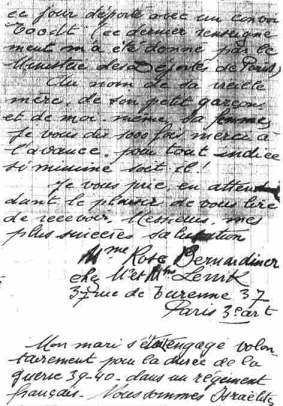 ce jour déporté avec un convoi
Todt (ce dernier renseigne
ment m'a été donné par le
Ministère des Déportés de Paris)
Au nom de sa vieille
mère, de son petit garçons
et de moi-même, sa femme,
je vous dis 1000 fois merci à
l'avance, pour tout indice
si minime soit-il!
Je vous prie, en atten
dant le plaisir de vous lire
de recevoir, Messieurs, mes
plus sincères salutation
Mme Rose Bernardiner
chez Mr et Mme Lenik
37 rue de Turenne 37
Paris 3e art
Mon mari s'était engagé volon
tairement pour la durée de la
guerre 39-40. dans un régiment
français. Nous sommes Israélites